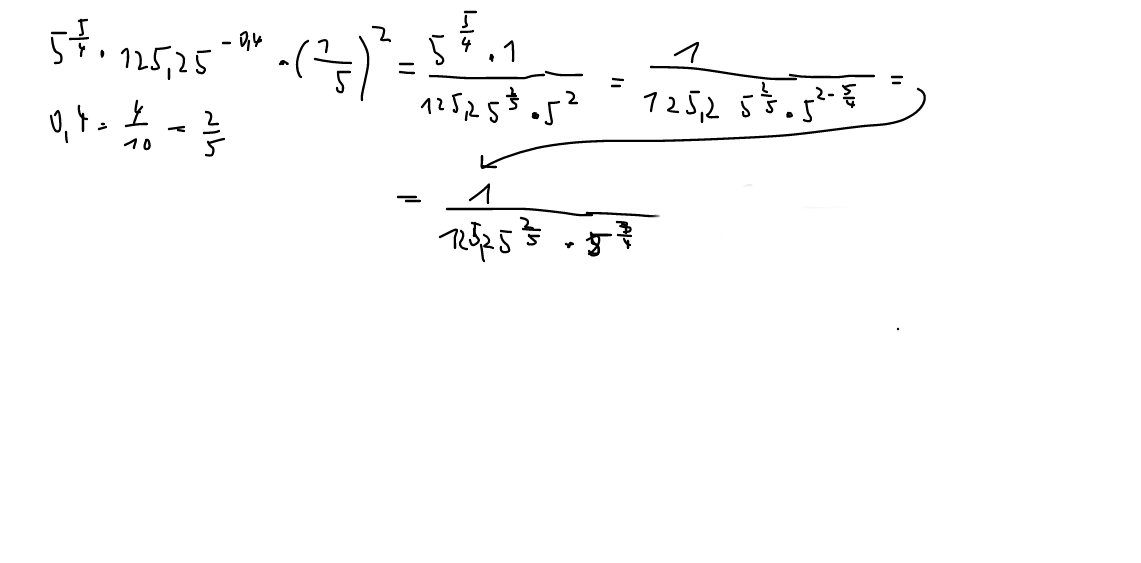 5^{5/4} · 125,25^{-0,4} · (1/5)^2 = (5^{5/4} · 1)/(125,25^{2/5} · 5^2) = 1/(125,2 5^{2/5} · 5^{2-5/4}) =
0,4 = 4/10 = 2/5
= 1/(125,25^{2/5} · 5^{3/4})